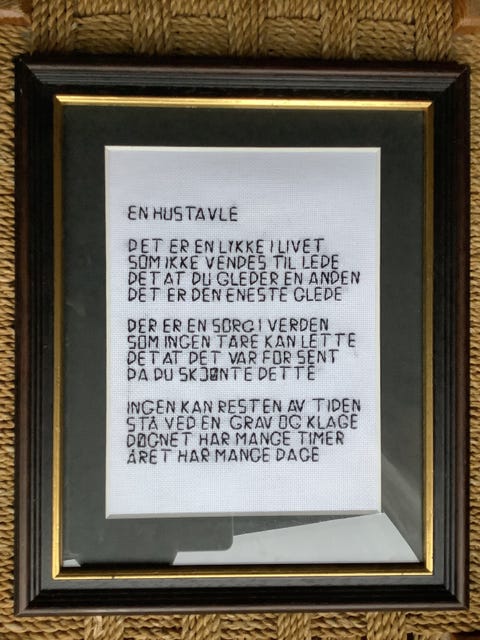 EN HUSTAVLE
DET ER EN LYKKE I LIVET
SOM IKKE VENDES TIL LEDE
DET AT DU GLEDER EN ANDEN
DET ER DEN ENESTE GLEDE
DER ER EN SORG I VERDEN
SOM INGEN TARE KAN LETTE
DET AT DET VAR FOR SENT
DA DU SKJØNTE DETTE
INGEN KAN RESTEN AV TIDEN
STÅ VED EN GRAV OG KLAGE
DØGNET HAR MANGE TIMER
ÅRET HAR MANGE DAGE